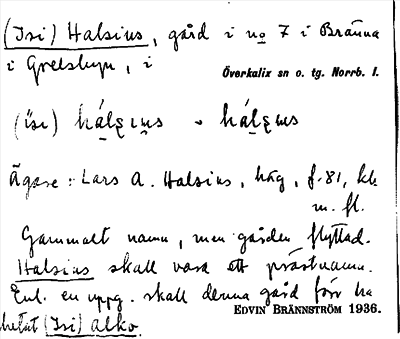 (Isi) Halsius, gård i no 7 i Bränna
i Grelsbyn, i
Överkalix sn o. tg. Norrb. l.
Ägare: Lars A. Halsius, häg, f. 81,
m. fl.
Gammalt namn, men gården flyttad.
Halsius skall vara ett prästnamn.
Enl. en uppg. skall denna gård förr ha
hetat (Isi) alko.
EDVIN BRÄNNSTRÖM 1936.